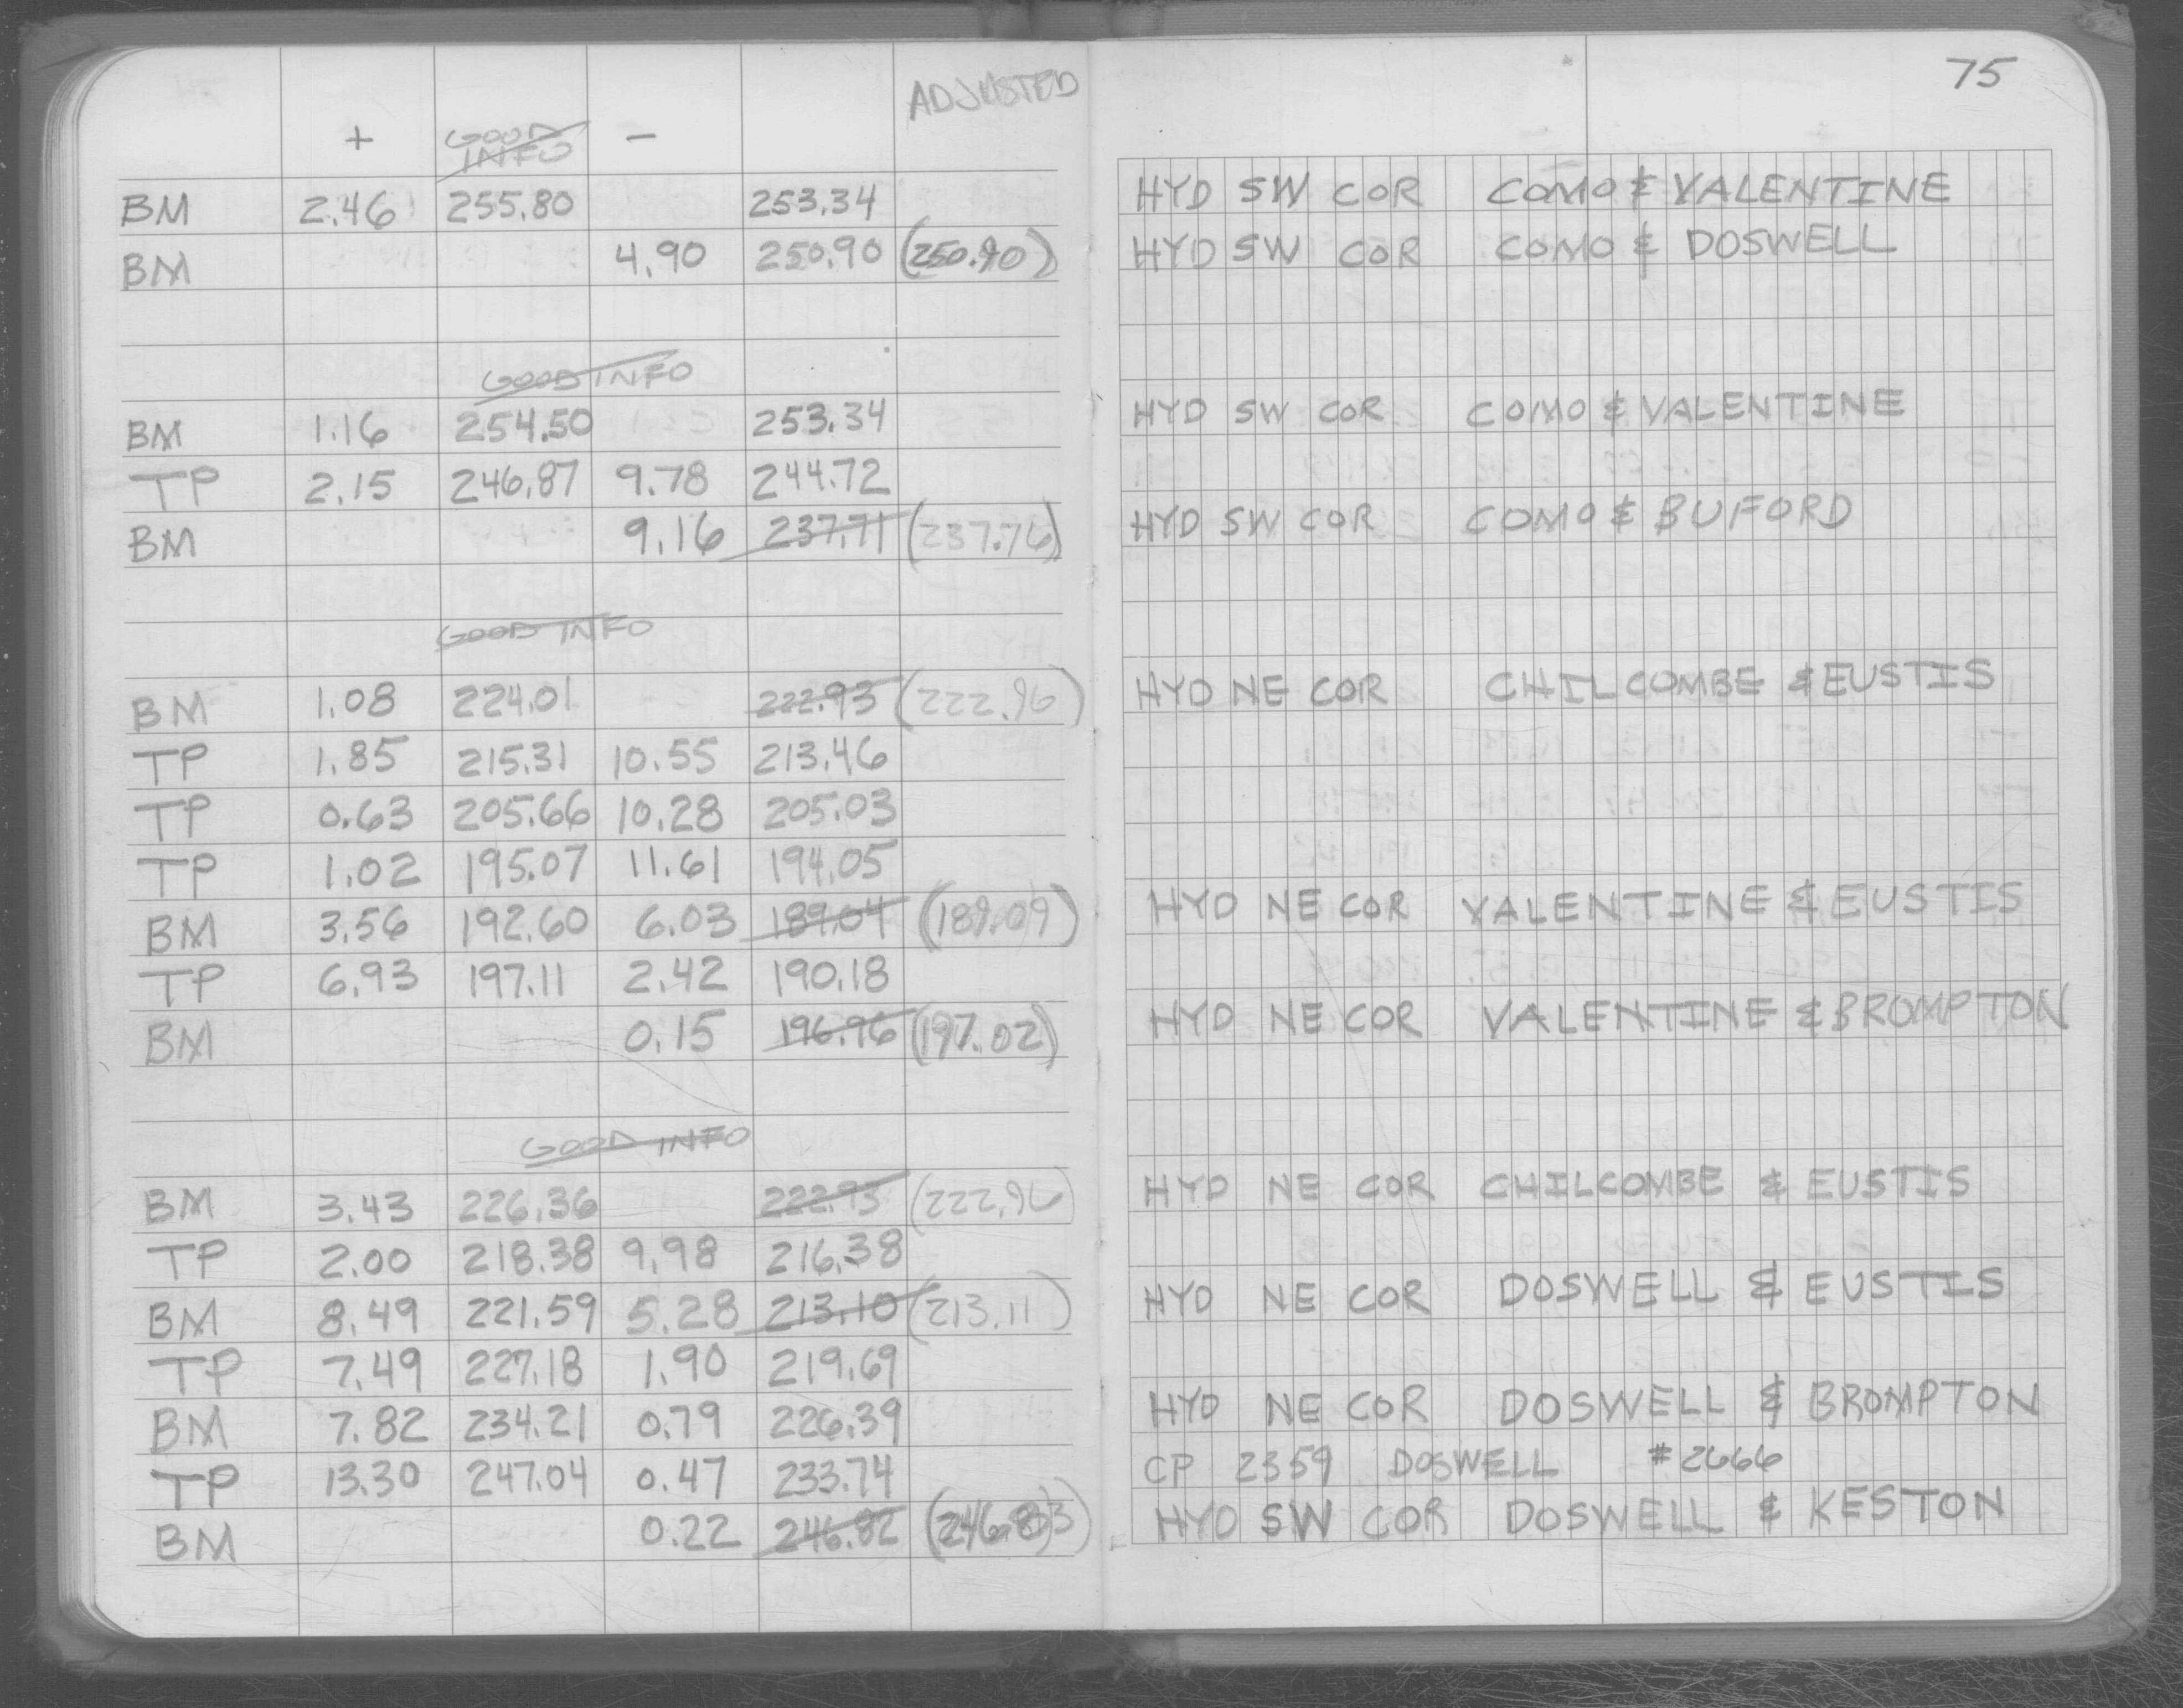 75
ADJUSTED
+ GOOD INFO −
BM 2.46 255.80 253.34 HYD SW COR COMO & VALENTINE
BM 4.90 250.90 (250.90) HYD SW COR COMO & DOSWELL
GOOD INFO
BM 1.16 254.50 253.34 HYD SW COR COMO & VALENTINE
TP 2.15 246.87 9.78 244.72
BM 9.16 237.71 (237.76) HYD SW COR COMO & BUFORD
GOOD INFO
BM 1.08 224.01 222.93 (222.96) HYD NE COR CHILCOMBE & EUSTIS
TP 1.85 215.31 10.55 213.46
TP 0.63 205.66 10.28 205.03
TP 1.02 195.07 11.61 194.05
BM 3.56 192.60 6.03 189.04 (189.09) HYD NE COR VALENTINE & EUSTIS
TP 6.93 197.11 2.42 190.18
BM 0.15 196.96 (197.02) HYD NE COR VALENTINE & BROMPTON
GOOD INFO
BM 3.43 226.36 222.93 (222.96) HYD NE COR CHILCOMBE & EUSTIS
TP 2.00 218.38 9.98 216.38
BM 8.49 221.59 5.28 213.10 (213.11) HYD NE COR DOSWELL & EUSTIS
TP 7.49 227.18 1.90 219.69
BM 7.82 234.21 0.79 226.39 HYD NE COR DOSWELL & BROMPTON
TP 13.30 247.04 0.47 233.74 CP 2359 DOSWELL #2666
BM 0.22 246.82 (246.83) HYD SW COR DOSWELL & KESTON